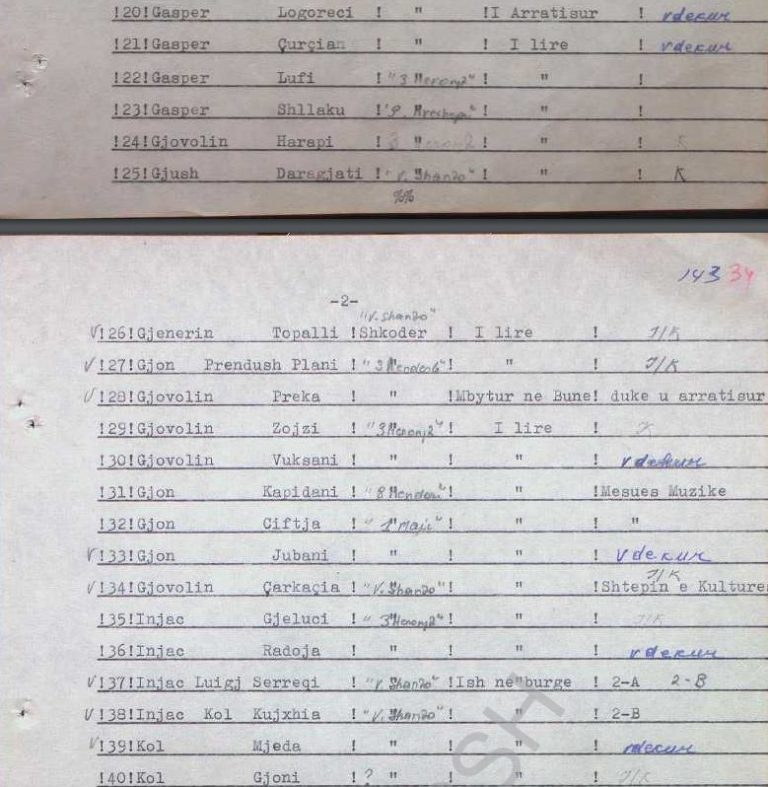 !20!Gasper Logoreci ! " !I Arratisur ! vdekur
!21!Gasper Çurçian ! " ! I lire ! vdekur
!22!Gasper Lufi ! "3 Heronj2" ! " !
!23!Gasper Shllaku ! " ! " !
!24!Gjovolin Harapi ! 3 " ! " ! K
!25!Gjush Daragjati ! "V. Shanto" ! " ! K
%%
143 34
-2-
"V. Shanto"
V!26!Gjenerin Topalli !Shkoder ! I lire ! J/K
V!27!Gjon Prendush Plani ! " ! " ! J/K
V!28!Gjovolin Preka ! " !Mbytur ne Bune! duke u arratisur
!29!Gjovolin Zojzi ! "3 Heronj2" ! I lire ! K
!30!Gjovolin Vuksani ! " ! " ! vdekur
!31!Gjon Kapidani ! " ! " !Mesues Muzike
!32!Gjon Ciftja ! "1 Maji" ! " ! "
V!33!Gjon Jubani ! " ! " ! Vdekur
J/K
V!34!Gjovolin Çarkaçia ! "V. Shanto" ! " !Shtepin e Kultures
!35!Injac Gjeluci ! "3 Heronj2" ! " ! J/K
!36!Injac Radoja ! " ! " ! vdekur
V!37!Injac Luigj Serreqi ! "V. Shanto" !Ish ne"burge ! 2-A 2-B
V!38!Injac Kol Kujxhia ! "V. Shanto" ! " ! 2-B
V!39!Kol Mjeda ! " ! " ! vdekur
!40!Kol Gjoni ! ? " ! " ! J/K
SH